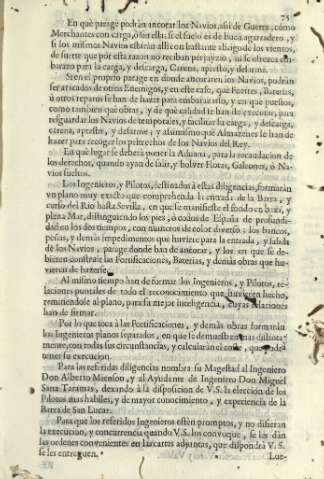 75
En què parage podràn ancorar los Navios, assi de Guerra, como
Merchantes con carga, ò sin ella: si el suelo es de buen agarradero, y
si los mismos Navios estaràn alli con bastante abrigo de los vientos,
de suerte que por esta razon no reciban perjuyzio, ni se ofrezca em-
barazo para la carga, y descarga, Carena, apresto, y desarmo.
Si en el proprio parage en donde ancoraren los Navios, podràn
ser atacados de otros Enemigos, y en este caso, què Fuertes, Baterias,
ò otros reparos se han de hazer para embarazarlo, y en que puestos,
como tambien què obras, y de que calidad se han de executar, para
resguardar los Navios de temporales, y facilitar su carga, y descarga,
carena, apresto, y desarmo; y assimismo què Almazenes se han de
hazer para recoger los pertrechos de los Navios del Rey.
En què lugar se deberà poner la Aduana, para la recaudacion de
los derechos, quando ayan de salir, y bolver Flotas, Galeones, ò Na-
vios sueltos.
Los Ingenieros, y Pilotos, destinados à estas diligencias, formaràn
un plano muy exacto que comprehenda la entrada de la Barra, y
curso del Rio hasta Sevilla, en que se manifieste el fondo en baxa, y
plena Mar, distinguiendo los pies, ò codos de España de profundi-
dad en los dos tiempos, con numeros de color diverso: los bancos,
peñas, y demàs impedimentos que huviere para la entrada, y salida
de los Navios, parage donde han de ancorar, y los en que se de-
bieren construir las Fortificaciones, Baterias, y demàs obras que hu-
vieren de hazerse.
Al mismo tiempo han de formar los Ingenieros, y Pilotos, re-
laciones puntuales de todo el reconocimiento que huvieren hecho,
remitiendole al plano, para su mejor inteligencia, cuyas relaciones
han de firmar.
Por lo que toca à las Fortificaciones, y demàs obras formaràn
los Ingenieros planos separados, en que le demuestren mas distinta-
mente, con todas sus circunstancias, y calcularàn el coste, que podrà
tener su execucion.
Para las referidas diligencias nombra su Magestad al Ingeniero
Don Alberto Mienson, y al Ayudante de Ingeniero Don Miguel
Sanz Taramas, dexando à la disposicion de V.S. la eleccion de los
Pilotos mas habiles, y de mayor conocimiento, y experiencia de la
Barra de San Lucar.
Para que los referidos Ingenieros estèn promptos, y no difieran
la execucion, y concurrencia quando V.S. los convoque, se les dàn
las ordenes convenientes en las cartas adjuntas, que dispondrà V.S.
se les entreguen.
Lue-